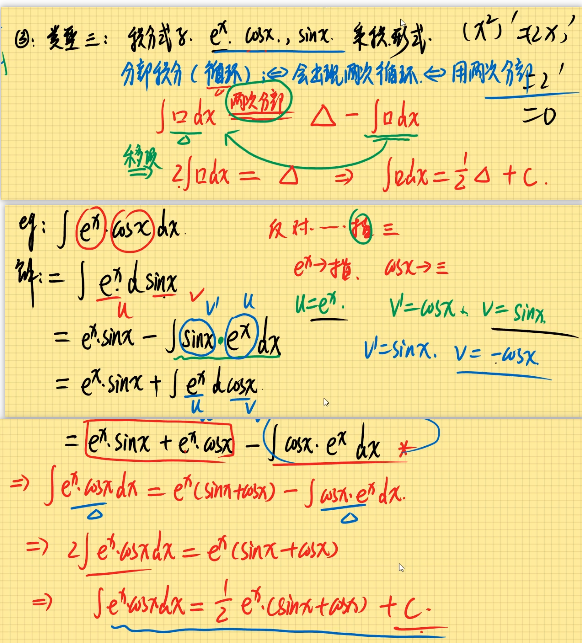 ③: 类型三: 积分式子. eˣ. cosx., sinx 乘积形式. (x²)' =(2x)'
分部积分 (循环) :⇔ 会出现两次循环 ⇔ 用两次分部 =2'
∫□dx 两次分部 △ - ∫□dx =0
△
移项 2∫□dx = △ ⇒ ∫□dx = 1/2 △ + C.
eg: ∫ eˣ·cosx dx. 反对·一·指三
解: = ∫ eˣ d sinx eˣ→指. cosx→三
u v v' u u=eˣ. v'=cosx、 v=sinx
= eˣ·sinx - ∫ sinx·eˣ dx v'=sinx. v=-cosx
= eˣ·sinx + ∫ eˣ d cosx
u v
= eˣ·sinx + eˣ·cosx - ∫ cosx·eˣ dx *
⇒ ∫ eˣ·cosx dx = eˣ(sinx+cosx) - ∫ cosx·eˣ dx.
△ △
⇒ 2∫ eˣ·cosx dx = eˣ(sinx+cosx)
⇒ ∫ eˣ·cosx dx = 1/2 eˣ·(sinx+cosx) + C.